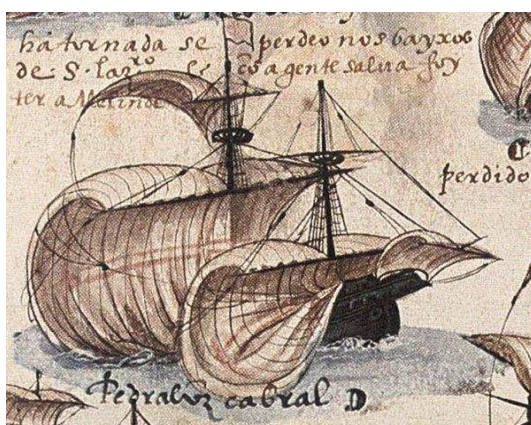 há tornada se perdeo nos bayxos
de S. lazro e co a gente salva foy
ter a Melinde
perdido
Pedralvz cabral D